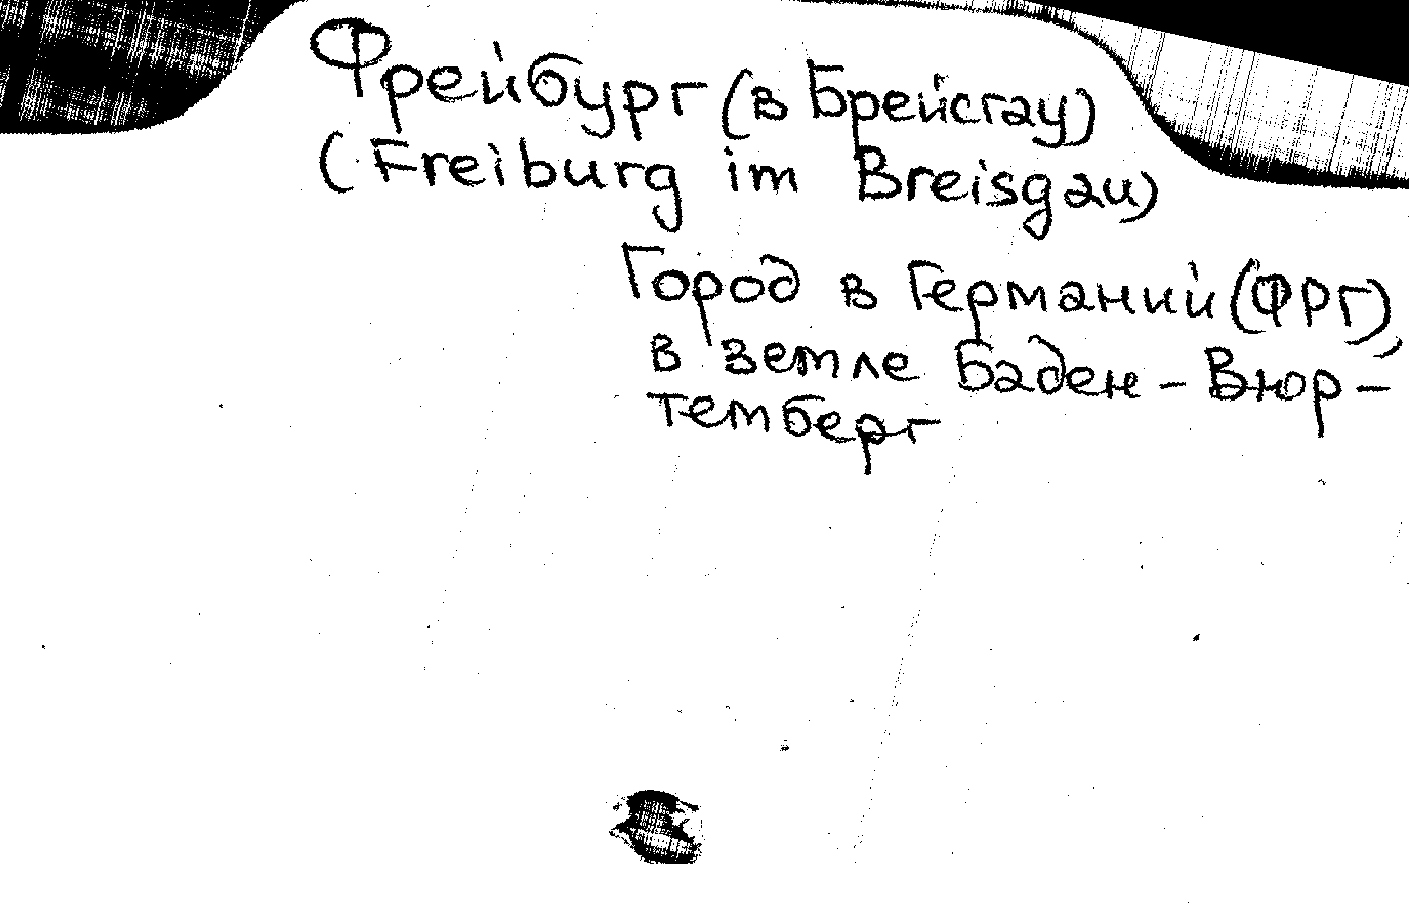 Фрейбург (в Брейсгау)
(Freiburg im Breisgau)
Город в Германий (ФРГ),
в земле Баден-Вюр-
темберг